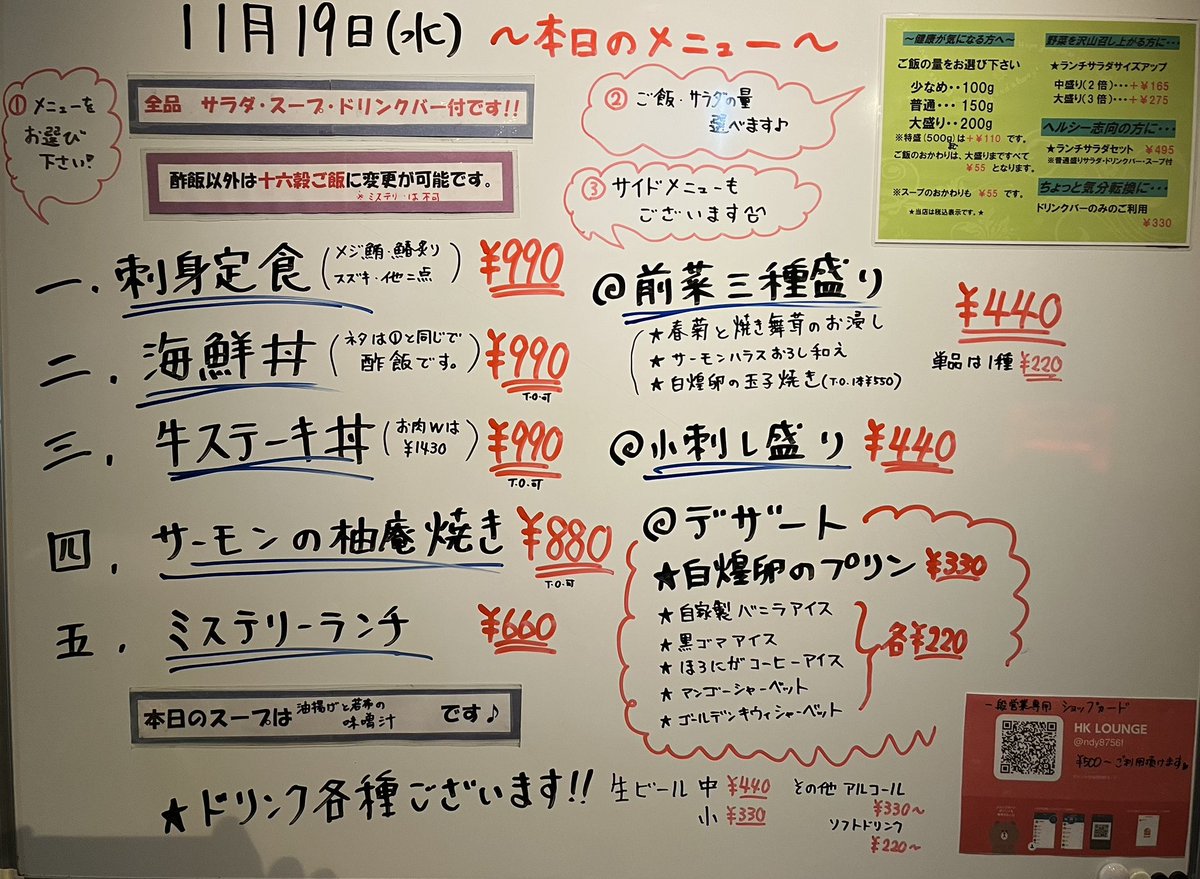 11月19日(水) ～本日のメニュー～
① メニューを
お選び
下さい!
全品 サラダ・スープ・ドリンクバー付です!!
酢飯以外は十六穀ご飯に変更が可能です。
※ミステリーは不可
② ご飯・サラダの量
選べます♪
③ サイドメニューも
ございます
～健康が気になる方へ～
ご飯の量をお選び下さい
少なめ・・100g
普通・・・150g
大盛り・・200g
※特盛(500g)は+¥110 です。
ご飯のおかわりは、大盛まですべて
¥55 となります。
※スープのおかわりも ¥55 です。
★当店は税込表示です。★
野菜を沢山召し上がる方に・・・
★ランチサラダサイズアップ
中盛り(2倍)・・・+¥165
大盛り(3倍)・・・+¥275
ヘルシー志向の方に・・・
★ランチサラダセット ¥495
※普通盛りサラダ・ドリンクバー・スープ付
ちょっと気分転換に・・・
ドリンクバーのみのご利用
¥330
一. 刺身定食 (メジ鮪・鰆炙り
スズキ・他二点) ¥990
二. 海鮮丼 (ネタは①と同じで
酢飯です。) ¥990
T.O.可
三. 牛ステーキ丼 (お肉Wは
¥1430) ¥990
T.O.可
四. サーモンの柚庵焼き ¥880
T.O.可
五. ミステリーランチ ¥660
本日のスープは 油揚げと若布の
味噌汁 です♪
@前菜三種盛り ¥440
★春菊と焼き舞茸のお浸し
★サーモンハラスおろし和え
★白煌卵の玉子焼き(T.O.は¥550)
単品は1種 ¥220
@小刺し盛り ¥440
@デザート
★白煌卵のプリン ¥330
★自家製バニラアイス
★黒ゴマアイス
★ほろにがコーヒーアイス
★マンゴーシャーベット
★ゴールデンキウィシャーベット
各¥220
★ドリンク各種ございます!!
生ビール 中 ¥440
小 ¥330
その他アルコール
¥330～
ソフトドリンク
¥220～
一般営業専用 ショップカード
HK LOUNGE
@ndy8756l
¥500～ご利用頂けます